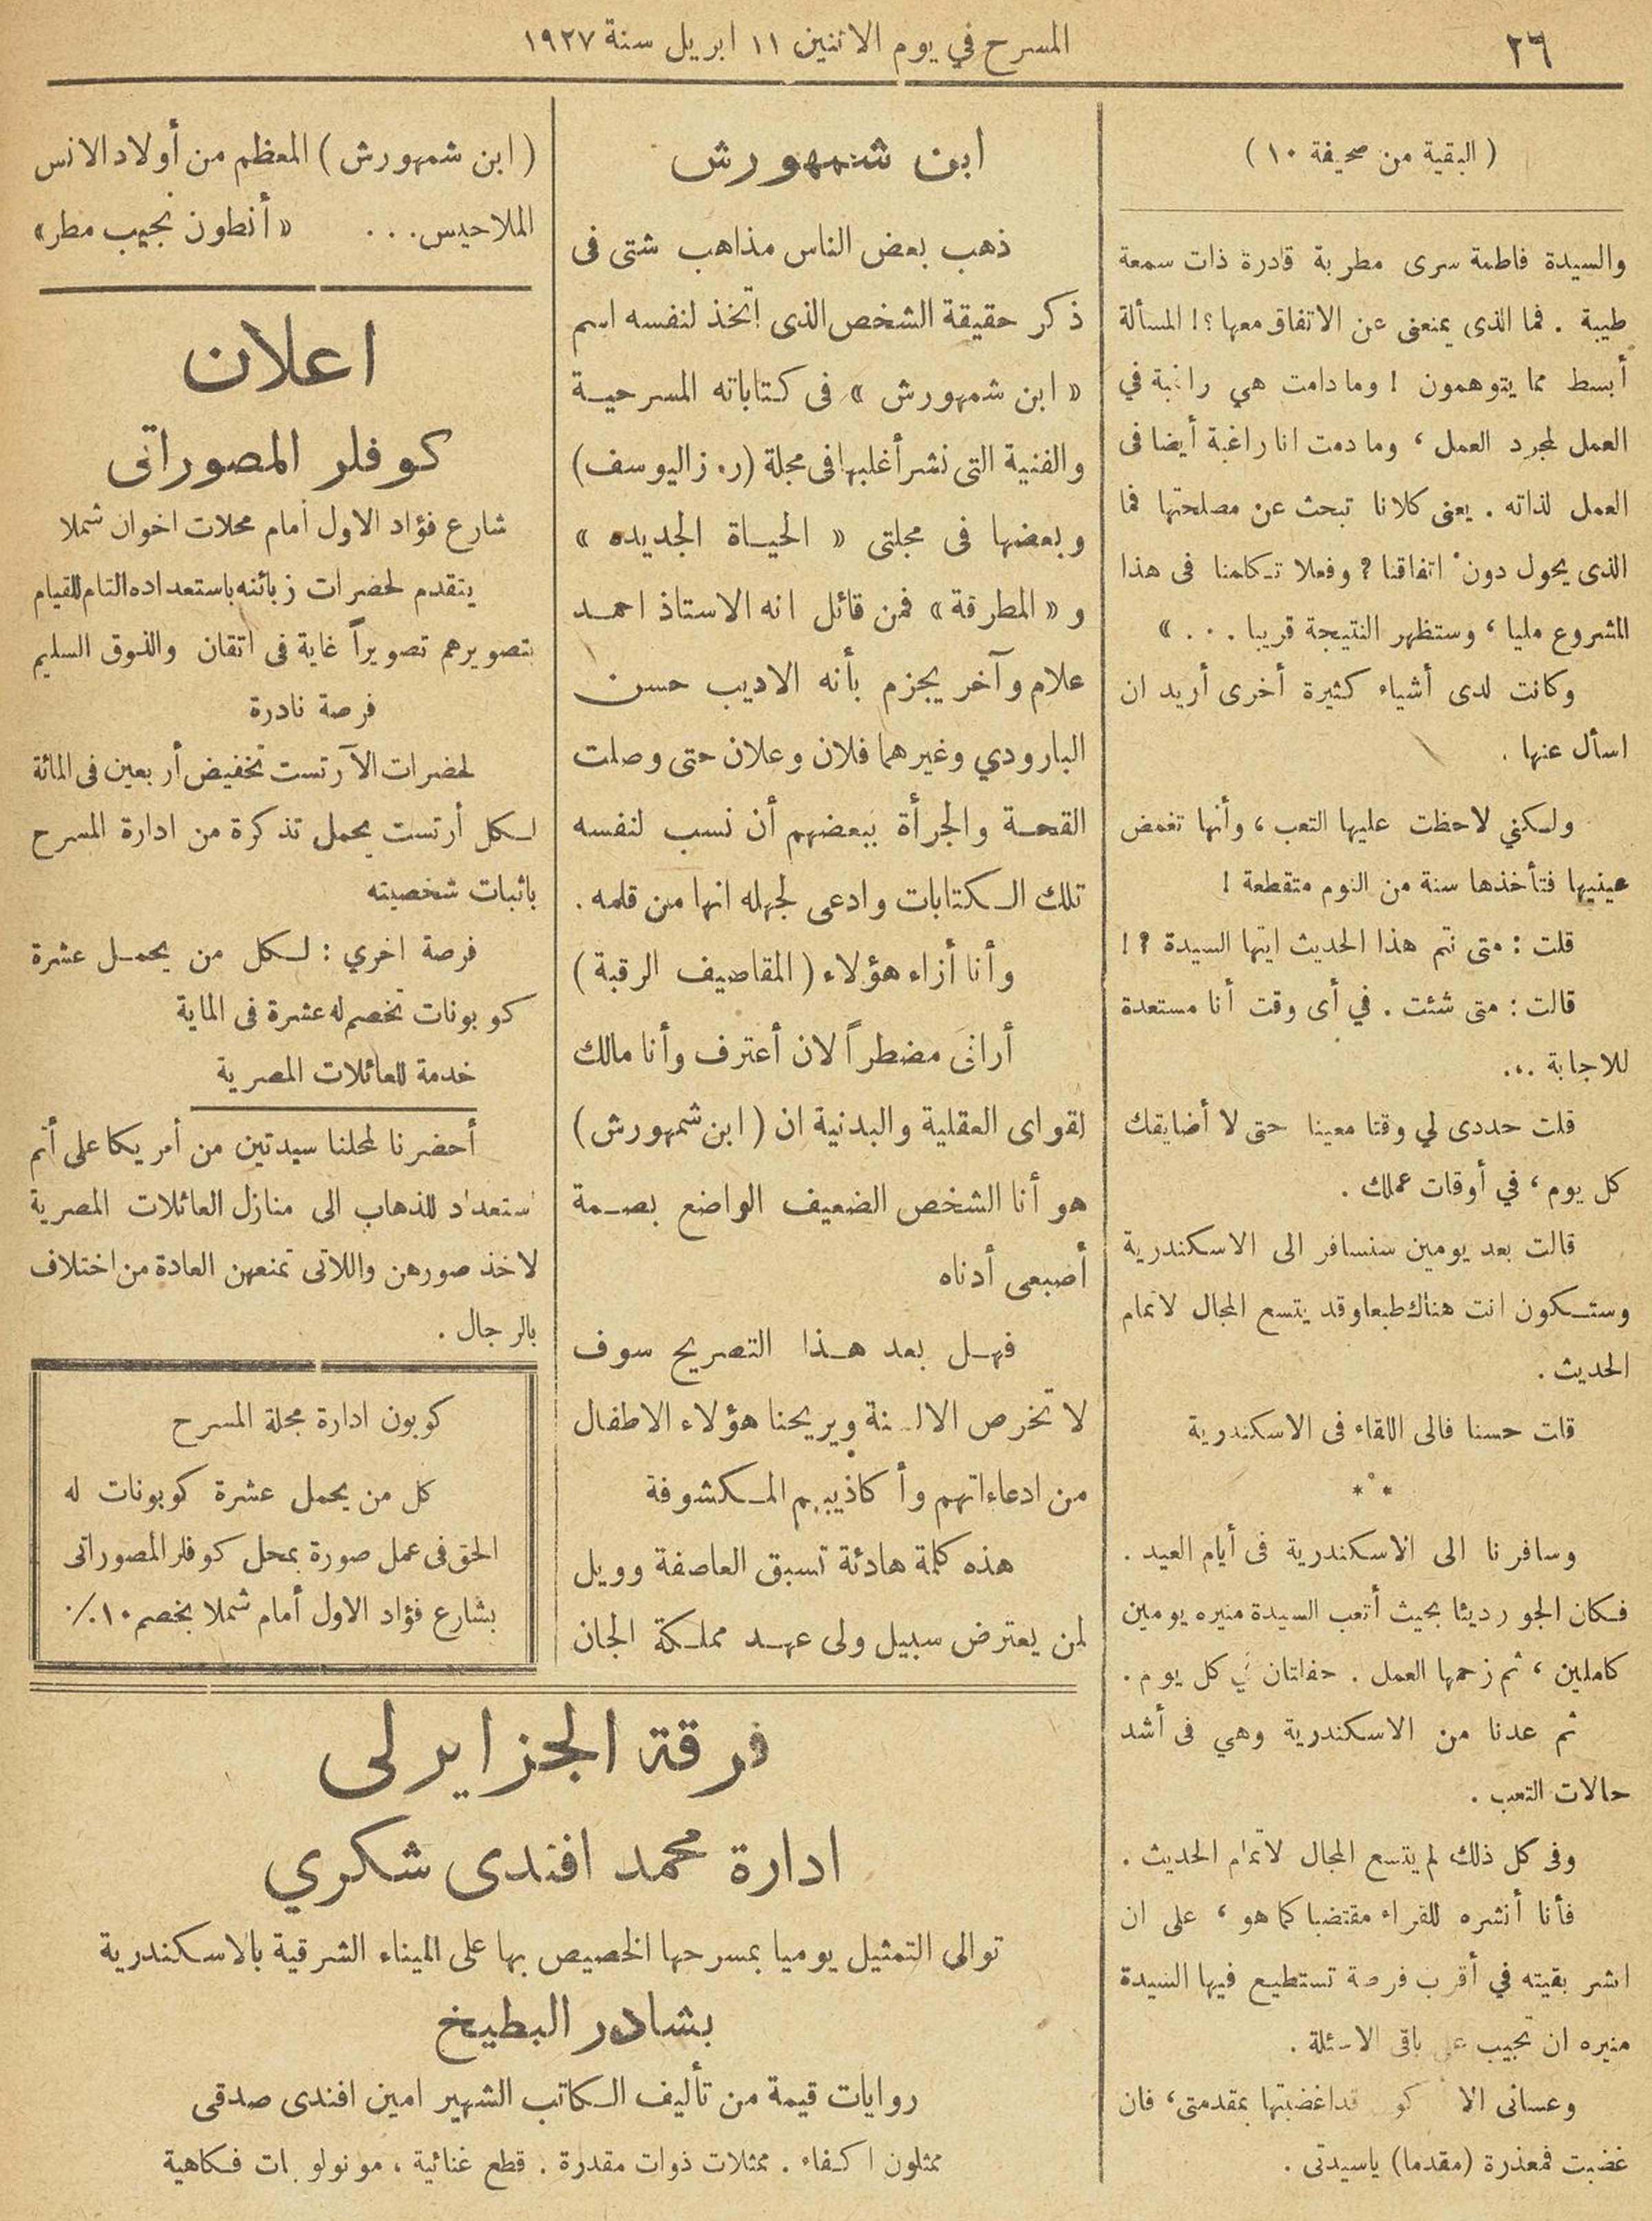 ٢٦
المسرح في يوم الاثنين ١١ ابريل سنة ١٩٢٧
( البقية من صحيفة ١٠ )
والسيدة فاطمة سرى مطربة قادرة ذات سمعة
طيبة . فما الذى يمنعنى عن الاتفاق معها ؟! المسألة
أبسط مما يتوهمون ! وما دامت هي راغبة في
العمل لمجرد العمل ، وما دمت انا راغبة أيضا فى
العمل لذاته . يعنى كلانا تبحث عن مصلحتها فما
الذى يحول دون اتفاقنا ؟ وفعلا تكلمنا فى هذا
المشروع مليا ، وستظهر النتيجة قريبا . . . »
وكانت لدى أشياء كثيرة أخرى أريد ان
اسأل عنها .
ولكني لاحظت عليها التعب ، وأنها تغمض
عينيها فتأخذها سنة من النوم متقطعة !
قلت : متى نتم هذا الحديث ايتها السيدة ؟ !
قالت : متى شئت . في أى وقت أنا مستعدة
للاجابة ...
قلت حددى لي وقتا معينا حتى لا أضايقك
كل يوم ، في أوقات عملك .
قالت بعد يومين سنسافر الى الاسكندرية
وستكون انت هناك طبعا وقد يتسع المجال لاتمام
الحديث .
قلت حسنا فالى اللقاء فى الاسكندرية
* * *
وسافرنا الى الاسكندرية فى أيام العيد .
فكان الجو رديئا بحيث أتعب السيدة منيره يومين
كاملين ، ثم زحمها العمل . حفلتان في كل يوم .
ثم عدنا من الاسكندرية وهي فى أشد
حالات التعب .
وفى كل ذلك لم يتسع المجال لاتمام الحديث .
فأنا أنشره للقراء مقتضبا كما هو ، على ان
انشر بقيته في أقرب فرصة تستطيع فيها السيدة
منيره ان تجيب على باقى الاسئلة .
وعسانى الا قد اغضبتها بمقدمتى ، فان
غضبت فمعذرة (مقدما) ياسيدتى .
ابن شمهورش
ذهب بعض الناس مذاهب شتى فى
ذكر حقيقة الشخص الذى اتخذ لنفسه اسم
« ابن شمهورش » فى كتاباته المسرحية
والفنية التى نشر أغلبها فى مجلة (روزاليوسف)
وبعضها فى مجلتى « الحياة الجديده »
و « المطرقة » فمن قائل انه الاستاذ احمد
علام وآخر يجزم بأنه الاديب حسن
البارودي وغيرهما فلان وعلان حتى وصلت
القحة والجرأة ببعضهم أن نسب لنفسه
تلك الكتابات وادعى لجهله انها من قلمه .
وأنا أزاء هؤلاء ( المقاصيف الرقبة )
أرانى مضطراً لان أعترف وأنا مالك
لقواى العقلية والبدنية ان ( ابن شمهورش )
هو أنا الشخص الضعيف الواضع بصمة
أصبعى أدناه
فهل بعد هذا التصريح سوف
لا تخرص الالسنة ويريحنا هؤلاء الاطفال
من ادعاءاتهم وأكاذيبهم المكشوفة
هذه كلمة هادئة تسبق العاصفة وويل
لمن يعترض سبيل ولى عهد مملكة الجان
( ابن شمهورش ) المعظم من أولاد الانس
الملاحيس . . . « أنطون نجيب مطر »
اعلان
كوفلر المصوراتى
شارع فؤاد الاول أمام محلات اخوان شملا
يتقدم لحضرات زبائنه باستعداده التام للقيام
بتصويرهم تصويراً غاية فى اتقان والذوق السليم
فرصة نادرة
لحضرات الآرتست تخفيض أربعين فى المائة
لكل أرتست يحمل تذكرة من ادارة المسرح
باثبات شخصيته
فرصة اخري : لكل من يحمل عشرة
كوبونات تخصم له عشرة فى الماية
خدمة للعائلات المصرية
أحضرنا لمحلنا سيدتين من أمريكا على أتم
استعداد للذهاب الى منازل العائلات المصرية
لاخذ صورهن واللاتى تمنعهن العادة من اختلاف
بالرجال .
كوبون ادارة مجلة المسرح
كل من يحمل عشرة كوبونات له
الحق فى عمل صورة بمحل كوفلر المصوراتى
بشارع فؤاد الاول أمام شملا بخصم ١٠ ٪
فرقة الجزايرلى
ادارة محمد افندى شكري
توالى التمثيل يوميا بمسرحها الخصيص بها على الميناء الشرقية بالاسكندرية
بشادر البطيخ
روايات قيمة من تأليف الكاتب الشهير امين افندى صدقى
ممثلون اكفاء . ممثلات ذوات مقدرة . قطع غنائية ، مونولوجات فكاهية